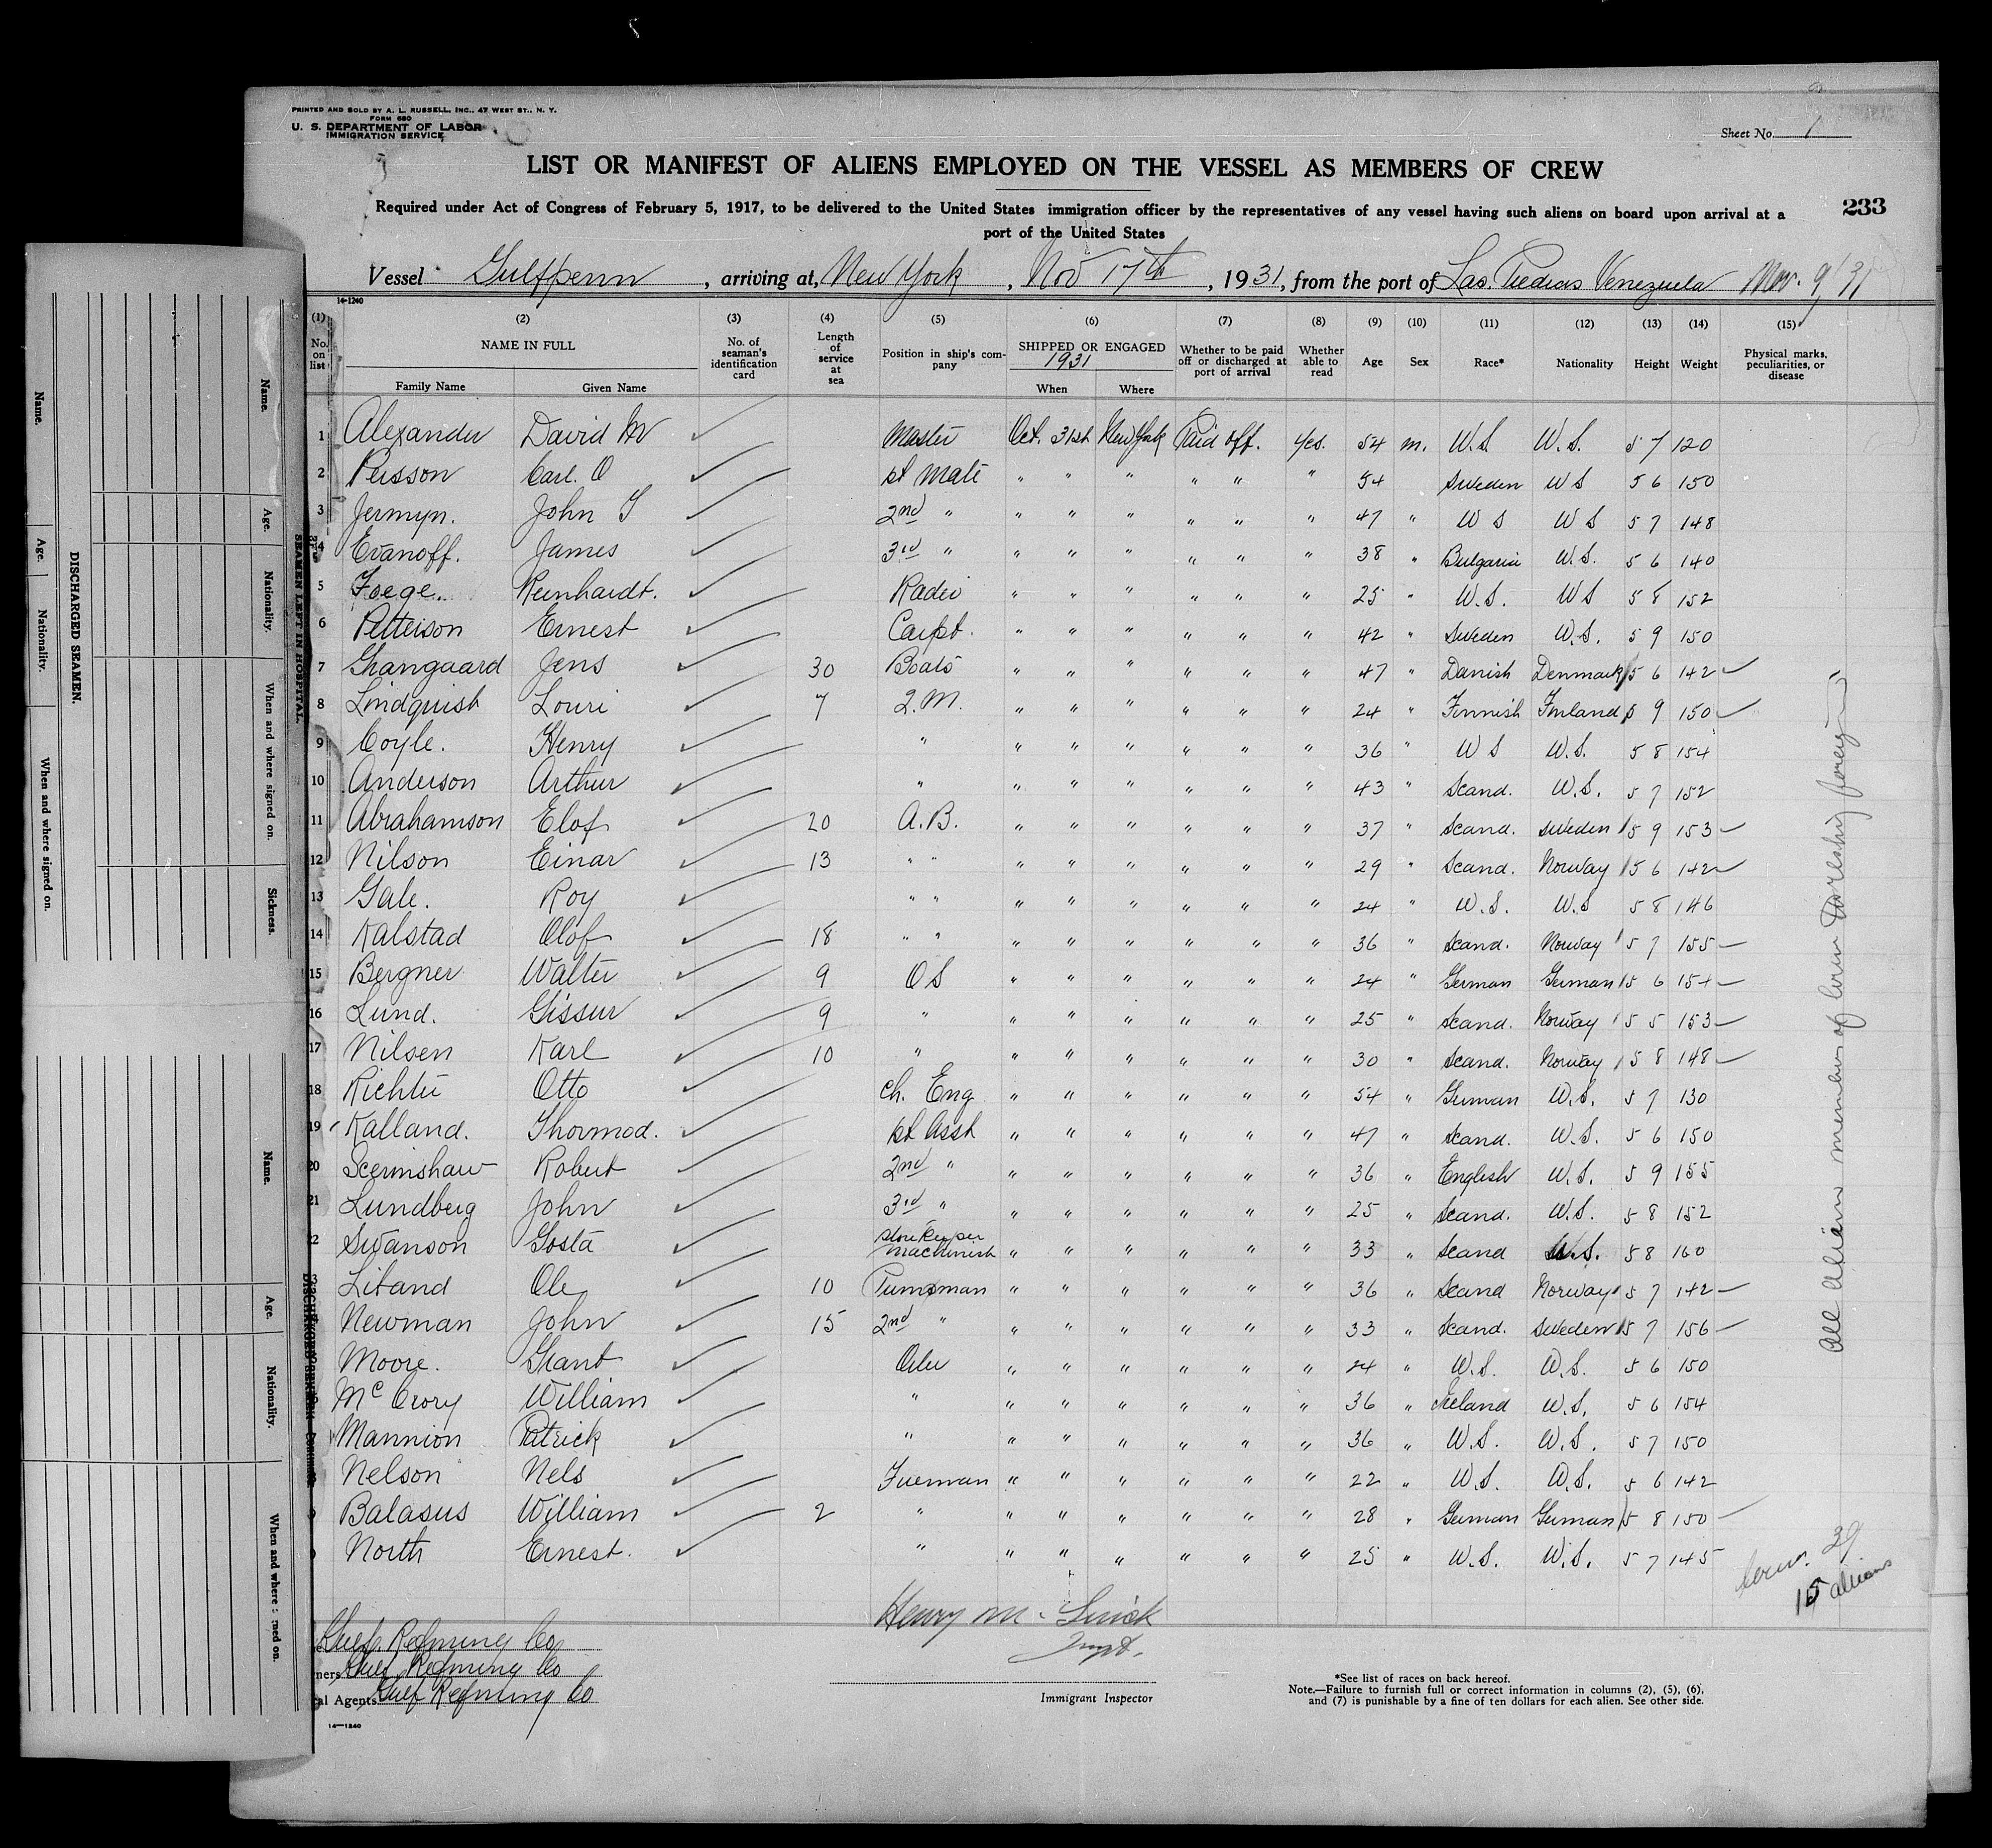 PRINTED AND SOLD BY A. L. RUSSELL, INC., 47 WEST ST., N. Y.
FORM 680
U. S. DEPARTMENT OF LABOR
IMMIGRATION SERVICE
Sheet No. 1
LIST OR MANIFEST OF ALIENS EMPLOYED ON THE VESSEL AS MEMBERS OF CREW
Required under Act of Congress of February 5, 1917, to be delivered to the United States immigration officer by the representatives of any vessel having such aliens on board upon arrival at a
port of the United States
233
Vessel Gulfpenn, arriving at, New York, Nov 17th, 1931, from the port of Las. Piedras Venezuela Nov. 9/31
14-1240
(1) (2) (3) (4) (5) (6) (7) (8) (9) (10) (11) (12) (13) (14) (15)
No. on list
NAME IN FULL
Family Name Given Name
No. of seaman's identification card
Length of service at sea
Position in ship's company
SHIPPED OR ENGAGED
1931
When Where
Whether to be paid off or discharged at port of arrival
Whether able to read
Age
Sex
Race*
Nationality
Height
Weight
Physical marks, peculiarities, or disease
1 Alexander David M Master Oct. 31st New York Paid off. Yes. 54 m. U.S. U.S. 5 7 120
2 Persson Carl. O 1st Mate " " " " " " 54 Sweden U S 5 6 150
3 Jermyn. John J 2nd " " " " " " " 47 " U S U S 5 7 148
4 Evanoff. James 3rd " " " " " " " 38 " Bulgaria U.S. 5 6 140
5 Foege. Reinhardt. Radio " " " " " " 25 " U.S. U S 5 8 152
6 Petterson Ernest Carpt. " " " " " " 42 " Sweden U.S. 5 9 150
7 Thangaard Jens 30 Boats " " " " " " 47 " Danish Denmark 5 6 142
8 Lindquist Louri 7 Q.M. " " " " " " 24 " Finnish Finland 5 9 150
9 Coyle. Henry " " " " " " " 36 " U S U.S. 5 8 154
10 Anderson Arthur " " " " " " " 43 " Scand. U.S. 5 7 152
11 Abrahamson Elof 20 A.B. " " " " " " 37 " Scand. Sweden 5 9 153
12 Nilson Einar 13 " " " " " " " " 29 " Scand. Norway 5 6 142
13 Gale. Roy " " " " " " " " 24 " U.S. U.S 5 8 146
14 Kalstad Olof 18 " " " " " " " " 36 " Scand. Norway 5 7 155
15 Bergner Walter 9 O S " " " " " " 24 " German German 5 6 154
16 Lund. Gissur 9 " " " " " " " 25 " Scand. Norway 5 5 153
17 Nilsen Karl 10 " " " " " " " 30 " Scand. Norway 5 8 148
18 Richter Otto Ch. Eng " " " " " " 54 " German U.S. 5 7 130
19 Kalland. Thormod. 1st Asst " " " " " " 47 " Scand. U.S. 5 6 150
20 Scermshaw Robert 2nd " " " " " " " 36 " English U.S. 5 9 155
21 Lundberg John 3rd " " " " " " " 25 " Scand. U.S. 5 8 152
2 Swanson Gosta storekeeper machinist " " " " " " 33 " Scand U.S. 5 8 160
3 Litand Ole 10 Pumpman " " " " " " 36 " Scand Norway 5 7 142
Newman John 15 2nd " " " " " " " 33 " Scand. Sweden 5 7 156
Moore. Grant Oiler " " " " " " 24 " U.S. U.S. 5 6 150
McCrory William " " " " " " " 36 " Ireland U.S. 5 6 154
Mannion Patrick " " " " " " " 36 " U.S. U.S. 5 7 150
Nelson Nels Fireman " " " " " " 22 " U.S. U.S. 5 6 142
Balasus William 2 " " " " " " " 28 " German German 5 8 150
North Ernest. " " " " " " " 25 " U.S. U.S. 5 7 145
All alien members of crew foreign
Crew. 39
15 aliens
Henry M.
Inspt.
Immigrant Inspector
Gulf Refining Co
ners Gulf Refining Co
al Agents Gulf Refining Co
14-1240
*See list of races on back hereof.
Note.—Failure to furnish full or correct information in columns (2), (5), (6),
and (7) is punishable by a fine of ten dollars for each alien. See other side.
DISCHARGED SEAMEN.
Name. Age. Nationality. When and where signed on.
SEAMEN LEFT IN HOSPITAL.
Name. Age. Nationality. When and where signed on. Sickness.
DISCHARGED SEAMEN
Name. Age. Nationality. When and where